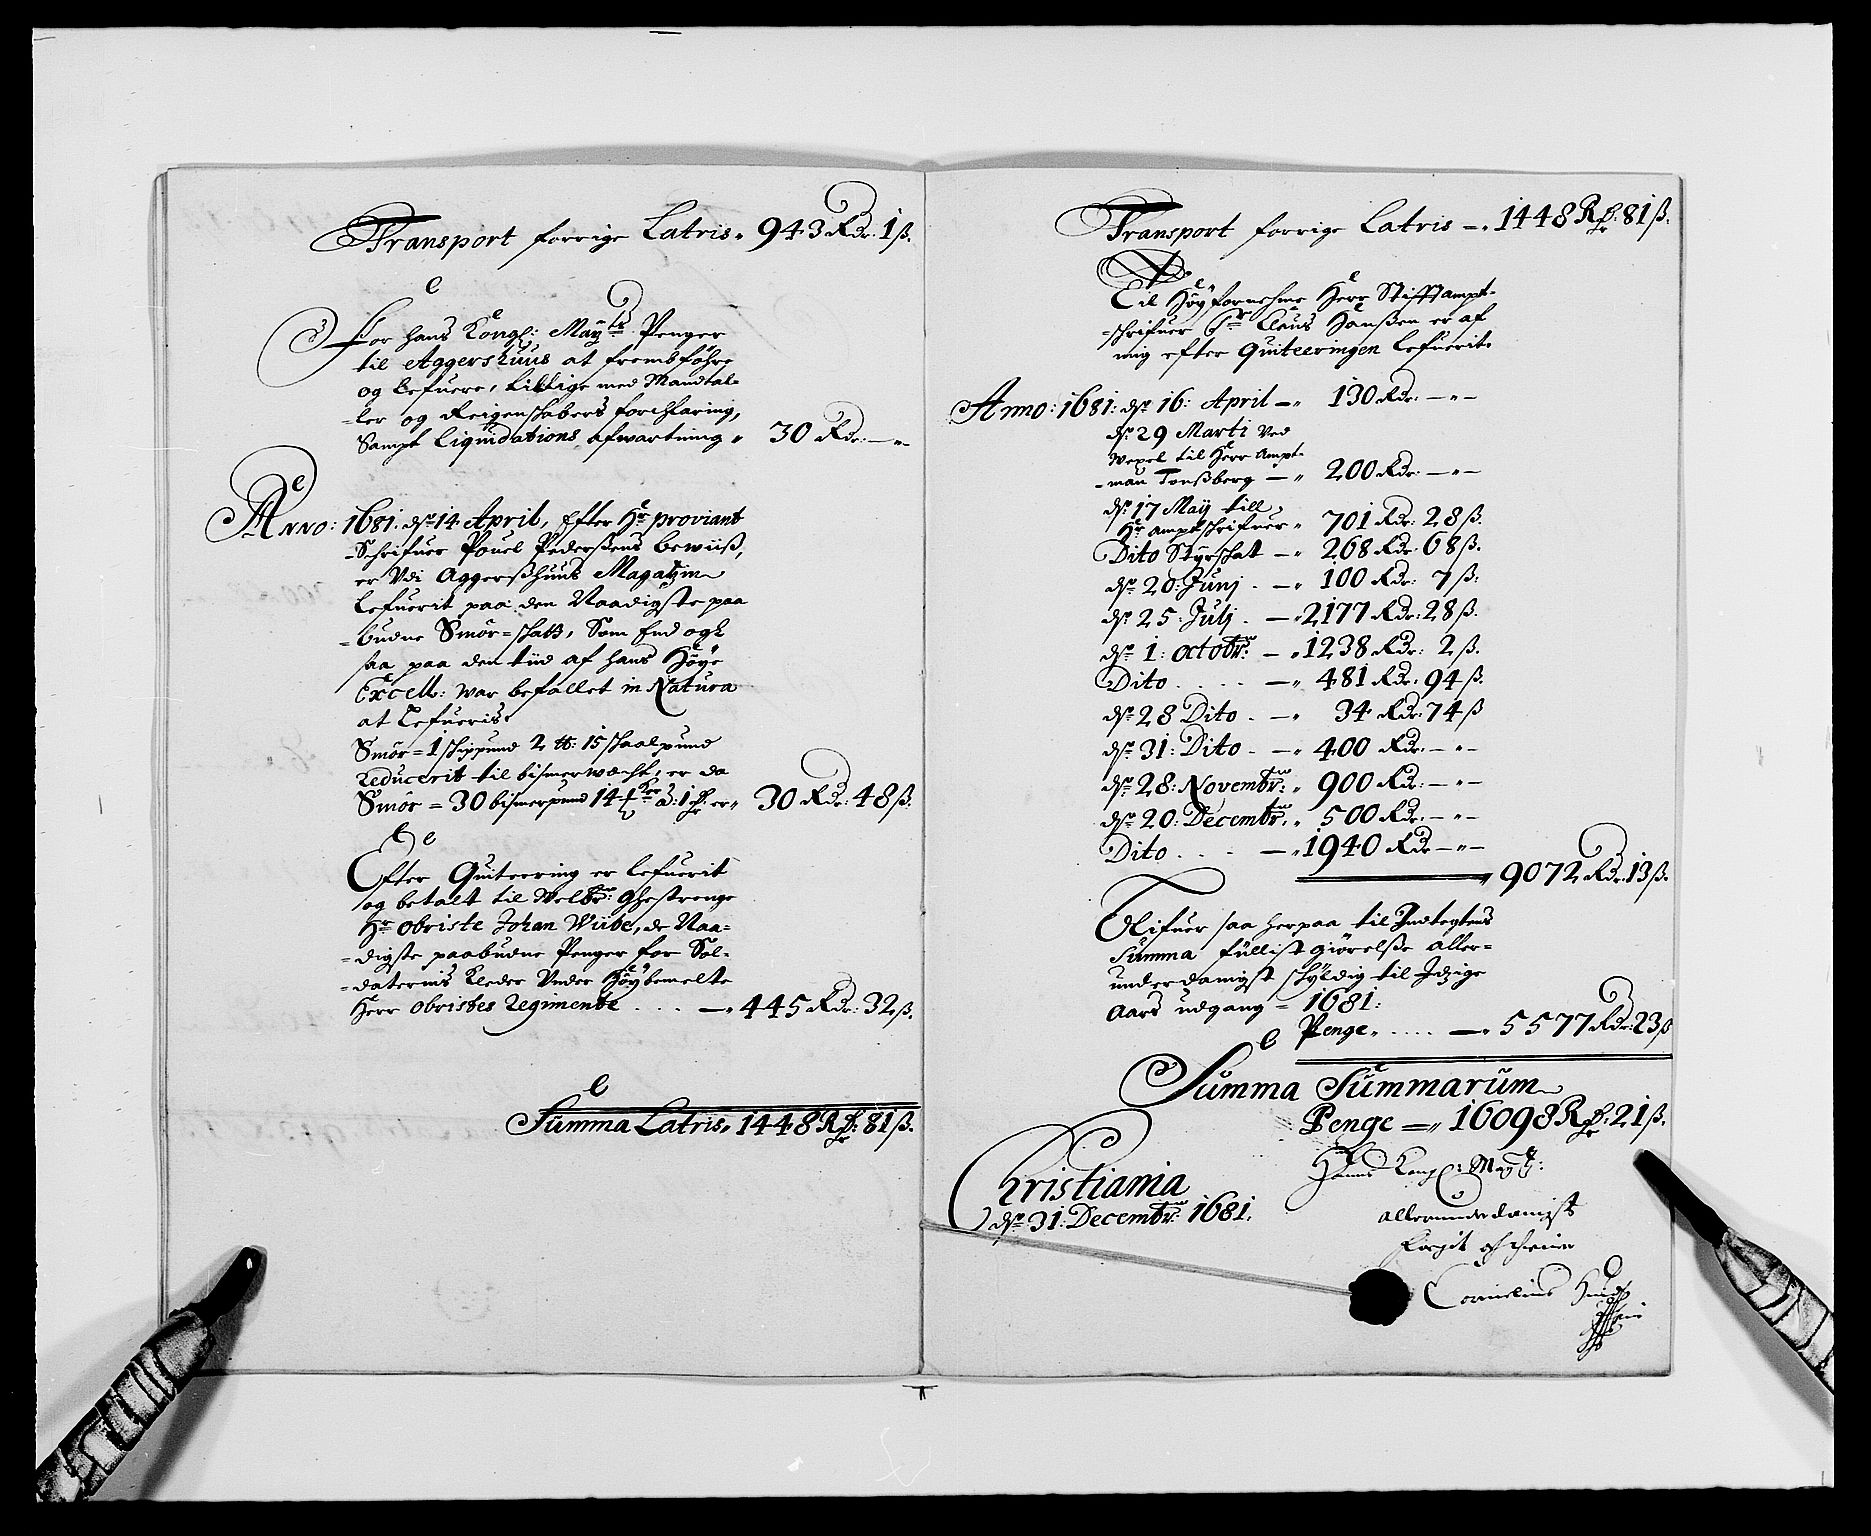 Transport forrige Latris 943 Rdr: 1 ß.
For hans Kongl: Mayts Penger
til Aggershuus at frembföhre
og lefuere, tillige med Mandtal-
-ler og Reigenschabers forklaring,
Sampt Liquidations afwartning " 30 Rdr: — " —
Anno: 1681. dn 14 April, Efter Hr proviant
-Schrifuer Pouel Pedersens bewiiß,
er Udi Aggerßhuus Magatzin
lefuerit paa den Naadigste paa
-budne Smör-schatt, Som End ogk
saa paa den tiid af hans Höye
Excell: war befallet in Natura
at Lefueris.
Smör = 1 schippund 2 tt: 15 schaalpund
reducerit til bismerwecht, er da
Smör = 30 bismerpund 14 a: 1 er " 30 Rdr: 48 ß.
Efter Quiteering er lefuerit
og betalt til Welbr: Ghestrenge
Hr Obriste Johan Wiibe, de Naa-
-digste paabudne Penger for Sol-
-daternis Kleder Under Höybemelte
Herr Obristes Regimente . . . — " 445 Rdr: 32 ß.
Summa Latris " 1448 Rdr: 81 ß.
Transport forrige Latris — " 1448 Rdr: 81 ß.
Til Höyfornehme Herr Stifftampt-
-schrifuer Sr Claus Hanßen er af
mig efter Quiteeringen lefuerit.
Anno: 1681: dn 16: April — " 130 Rdr: — " —
dn 29 Marti Ved
Wexel til Herr Ampt-
-man Tonßberg — " 200 Rdr: — " —
dn 17 May till
Hr amptschrifuer " 701 Rdr: 28 ß.
Dito Styrschat — " 268 Rdr: 68 ß.
dn 20: Junj . — " 100 Rdr: 7 ß:
dn 25: Julj . — " 2177 Rdr: 28 ß.
dn 1: octobr: — " 1238 Rdr: 2 ß.
Dito . . . . — " 481 Rdr: 94 ß.
dn 28 Dito . — " 34 Rdr: 74 ß
dn 31: Dito . — " 400 Rdr: — " —
dn 28: Novembr: " 900 Rdr: — " —
dn 20: Decembr: " 500 Rdr: — " —
Dito . . . — " 1940 Rdr — " —
" 9072 Rdr: 13 ß.
Blifuer saa herpaa til Indtegtens
Summa füllist giörelße aller-
underdanigst schyldig til Idzige
Aars udgang = 1681:
Penge " . . . . — " 5577 Rdr: 23 ß
Summa Summarum
Penge — " 16098 Rdr: 21 ß.
Christiania
dn 31: Decembr: 1681.
Hanns Kongl: Mayts:
allerunderdanigst
Cornelius